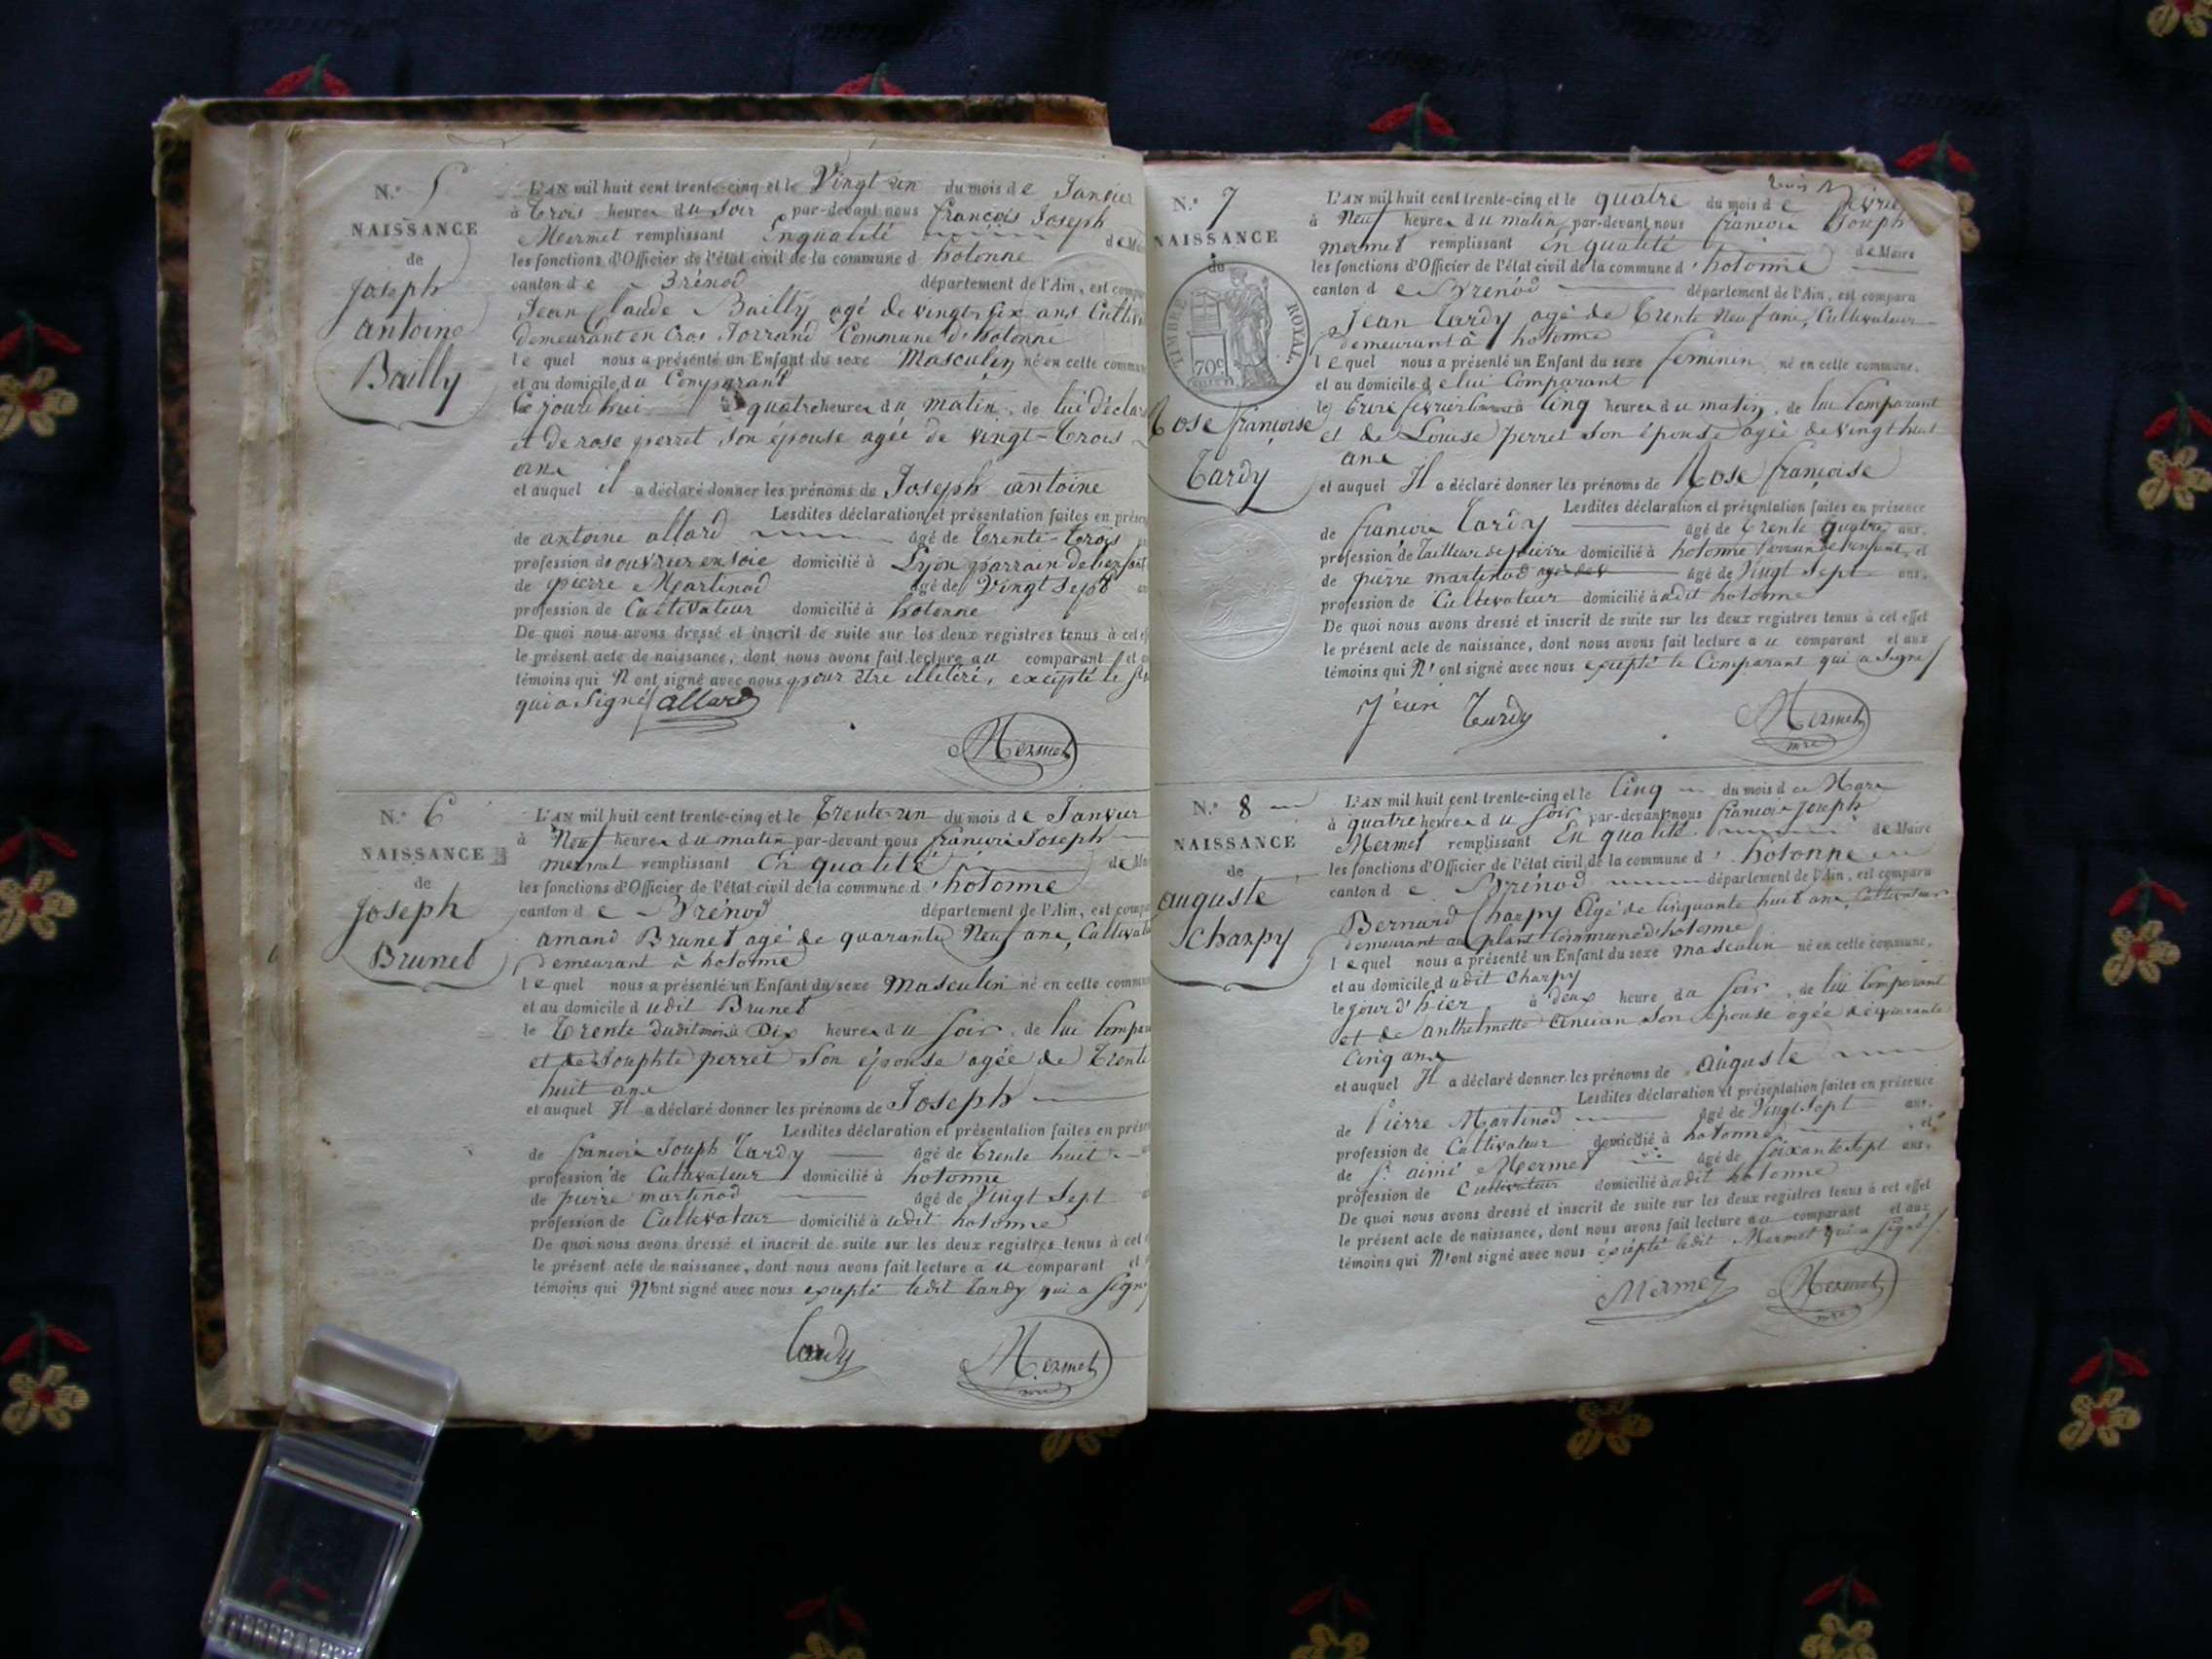 N.° 5
NAISSANCE
de
joseph
antoine
Bailly
L'AN mil huit cent trente-cinq et le Vingt un du mois de Janvier
à trois heures du soir par-devant nous françois Joseph
Mermet remplissant En qualité de
les fonctions d'Officier de l'état civil de la commune d hotonne
canton de Brénod département de l'Ain, est
Jean Claude Bailly agé de vingt six ans
demeurant en Cros Commune d'hotonne
lequel nous a présenté un Enfant du sexe Masculin né en cette
et au domicile du Comparant
Ce jourd'hui à quatre heures du matin, de lui
et de rose perret son épouse agée de vingt-trois
ans
et auquel il a déclaré donner les prénoms de Joseph antoine
Lesdites déclaration et présentation faites en
de antoine allard âgé de trente-trois
profession de ouvrier en soie domicilié à Lyon parrain de l'enfant
de pierre Martinod âgé de Vingt sept
profession de Cultivateur domicilié à hotonne
De quoi nous avons dressé et inscrit de suite sur les deux registres tenus à cet
le présent acte de naissance, dont nous avons fait lecture au comparant et
témoins qui N'ont signé avec nous pour être illitéré, excepté le
qui a Signé allard
Mermet
N.° 6
NAISSANCE
de
joseph
Brunet
L'AN mil huit cent trente-cinq et le trente-un du mois de Janvier
à Neuf heures du matin par-devant nous françois Joseph
mermet remplissant En qualité de
les fonctions d'Officier de l'état civil de la commune d'hotonne
canton de Brénod département de l'Ain, est
amand Brunet agé de quarante Neuf ans,
demeurant à hotonne
lequel nous a présenté un Enfant du sexe Masculin né en cette
et au domicile dudit Brunet
le trente dudit mois à Dix heures du soir, de lui
et de Josephte perret Son épouse agée de trente
huit ans
et auquel Il a déclaré donner les prénoms de Joseph
Lesdites déclaration et présentation faites en
de françois Joseph tardy âgé de trente huit
profession de Cultivateur domicilié à hotonne
de pierre martinod âgé de Vingt sept
profession de Cultivateur domicilié à udit hotonne
De quoi nous avons dressé et inscrit de suite sur les deux registres tenus à cet
le présent acte de naissance, dont nous avons fait lecture au comparant et
témoins qui N'ont signé avec nous excepté ledit tardy qui a signé
tardy
Mermet
mre
N.° 7
NAISSANCE
de
TIMBRE ROYAL.
70c
Rose françoise
tardy
L'AN mil huit cent trente-cinq et le quatre du mois de février
à Neuf heures du matin, par-devant nous françois Joseph
mermet remplissant En qualité de Maire
les fonctions d'Officier de l'état civil de la commune d'hotonne
canton de Brénod département de l'Ain, est comparu
Jean tardy agé de trente Neuf ans, Cultivateur
demeurant à hotonne
lequel nous a présenté un Enfant du sexe feminin né en cette commune,
et au domicile de lui Comparant
le trois février à Cinq heures du matin, de lui Comparant
et de Louise perret son épouse agée de vingt huit
ans
et auquel Il a déclaré donner les prénoms de Rose françoise
Lesdites déclaration et présentation faites en présence
de françois tardy âgé de trente quatre ans,
profession de tailleur de pierre domicilié à hotonne parrain de l'enfant, et
de pierre martinod âgé de Vingt sept ans,
profession de Cultivateur domicilié à udit hotonne
De quoi nous avons dressé et inscrit de suite sur les deux registres tenus à cet effet
le présent acte de naissance, dont nous avons fait lecture au comparant et aux
témoins qui N'ont signé avec nous excepté le Comparant qui a Signé
tardy
Mermet
mre
N.° 8
NAISSANCE
de
auguste
Charpy
L'AN mil huit cent trente-cinq et le Cinq du mois de Mars
à quatre heures du soir par-devant nous françois joseph
Mermet remplissant En qualité de Maire
les fonctions d'Officier de l'état civil de la commune d'hotonne
canton de Brénod département de l'Ain, est comparu
Bernard Charpy Agé de Cinquante huit ans, Cultivateur
demeurant au plans Commune d'hotonne
lequel nous a présenté un Enfant du sexe masculin né en cette commune,
et au domicile dudit Charpy
le jour d'hier à deux heure du soir, de lui Comparant
et de anthelmette son épouse agée de quarante
Cinq ans
et auquel Il a déclaré donner les prénoms de auguste
Lesdites déclaration et présentation faites en présence
de Pierre Martinod âgé de Vingt sept ans,
profession de Cultivateur domicilié à hotonne, et
de aimé Mermet âgé de soixante sept ans,
profession de Cultivateur domicilié à udit hotonne
De quoi nous avons dressé et inscrit de suite sur les deux registres tenus à cet effet
le présent acte de naissance, dont nous avons fait lecture au comparant et aux
témoins qui N'ont signé avec nous excépté ledit Mermet qui a signé
Mermet
Mermet
mre